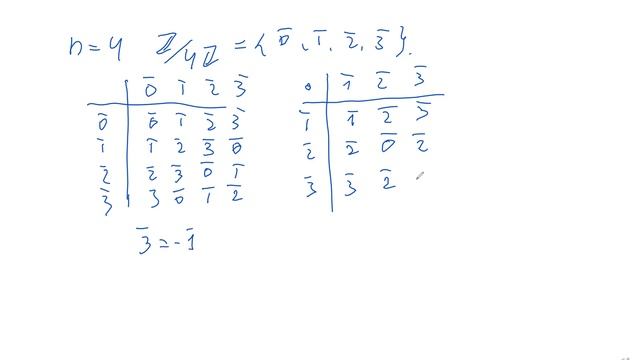 n=4 ℤ/4ℤ = { 0̅, 1̅, 2̅, 3̅ }.
0̅ 1̅ 2̅ 3̅
0̅ 0̅ 1̅ 2̅ 3̅
1̅ 1̅ 2̅ 3̅ 0̅
2̅ 2̅ 3̅ 0̅ 1̅
3̅ 3 0̅ 1̅ 2̅
· 1̅ 2̅ 3̅
1̅ 1̅ 2̅ 3̅
2̅ 2̅ 0̅ 2̅
3̅ 3̅ 2̅
3̅ = -1̅